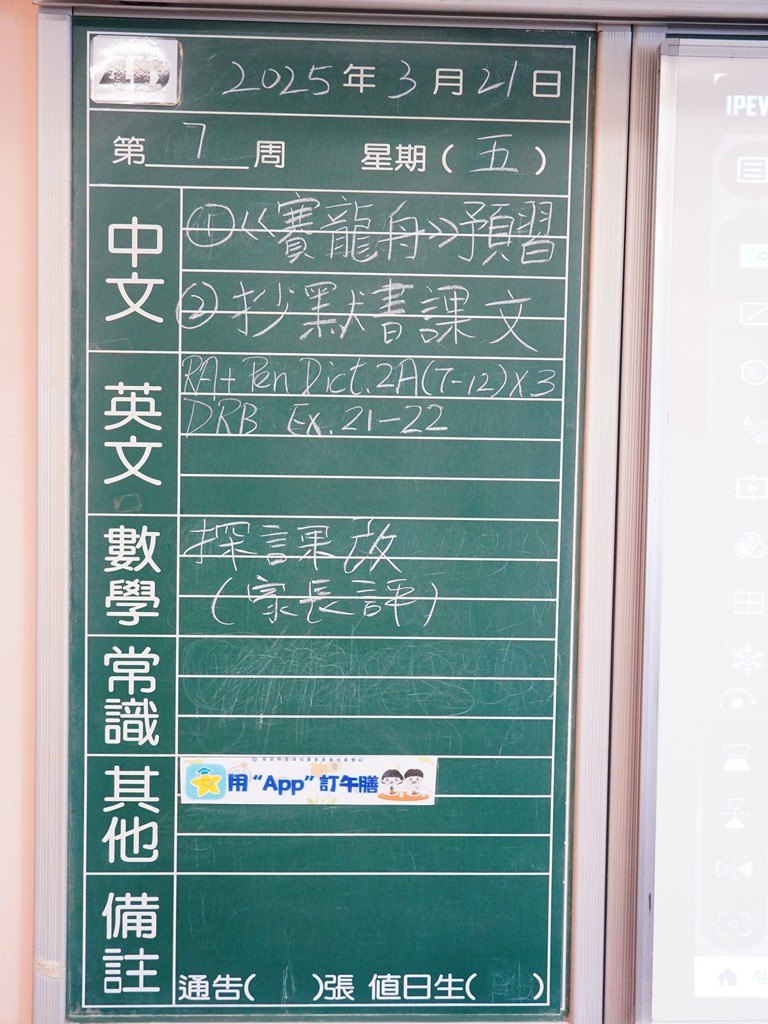 2025年3月21日
第 7 周 星期(五)
中文
①《賽龍舟》預習
②抄默書課文
英文
RA+ Pen Dict. 2A(7-12)x3
DRB Ex. 21-22
數學
探課放
(家長評)
常識
其他
用“App”訂午膳
備註
通告( )張 值日生( )
IPEV